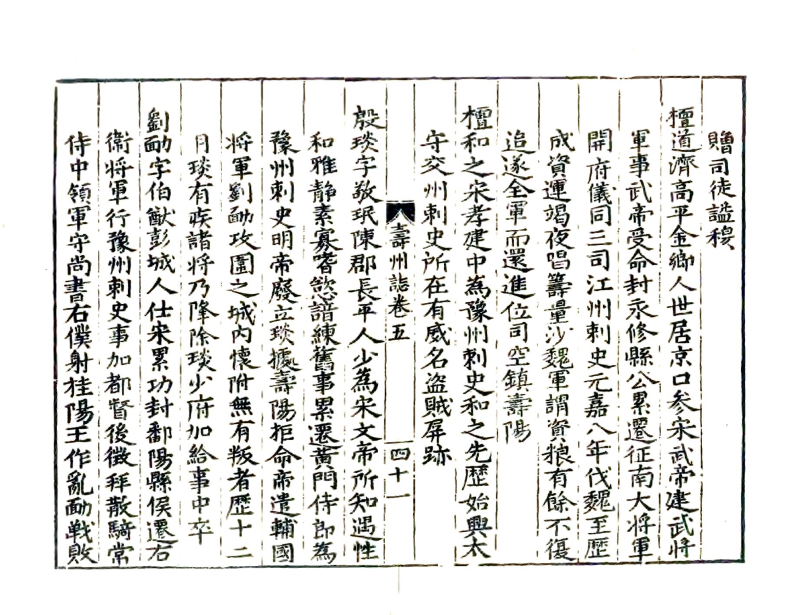 贈司徒謚穆
檀道濟高平金鄉人世居京口參宋武帝建武將
軍事武帝受命封永修縣公累遷征南大將軍
開府儀同三司江州刺史元嘉八年伐魏至歷
成資運竭夜唱籌量沙魏軍謂資粮有餘不復
追遂全軍而還進位司空鎮壽陽
檀和之宋孝建中為豫州刺史和之先歷始興太
守交州刺史所在有威名盜賊屏跡
壽州誌卷五
四十一
殷琰字敬珉陳郡長平人少為宋文帝所知遇性
和雅静素寡嗜慾諳練舊事累遷黄門侍郎為
豫州刺史明帝廢立琰據壽陽拒命帝遣輔國
将軍劉勔攻圍之城内懷附無有叛者歷十二
月琰有疾諸将乃降除琰少府加給事中卒
劉勔字伯猷彭城人仕宋累功封鄱陽縣侯遷右
衛将軍行豫州刺史事加都督後徵拜散騎常
侍中領軍守尚書右僕射桂陽王作亂勔戰敗